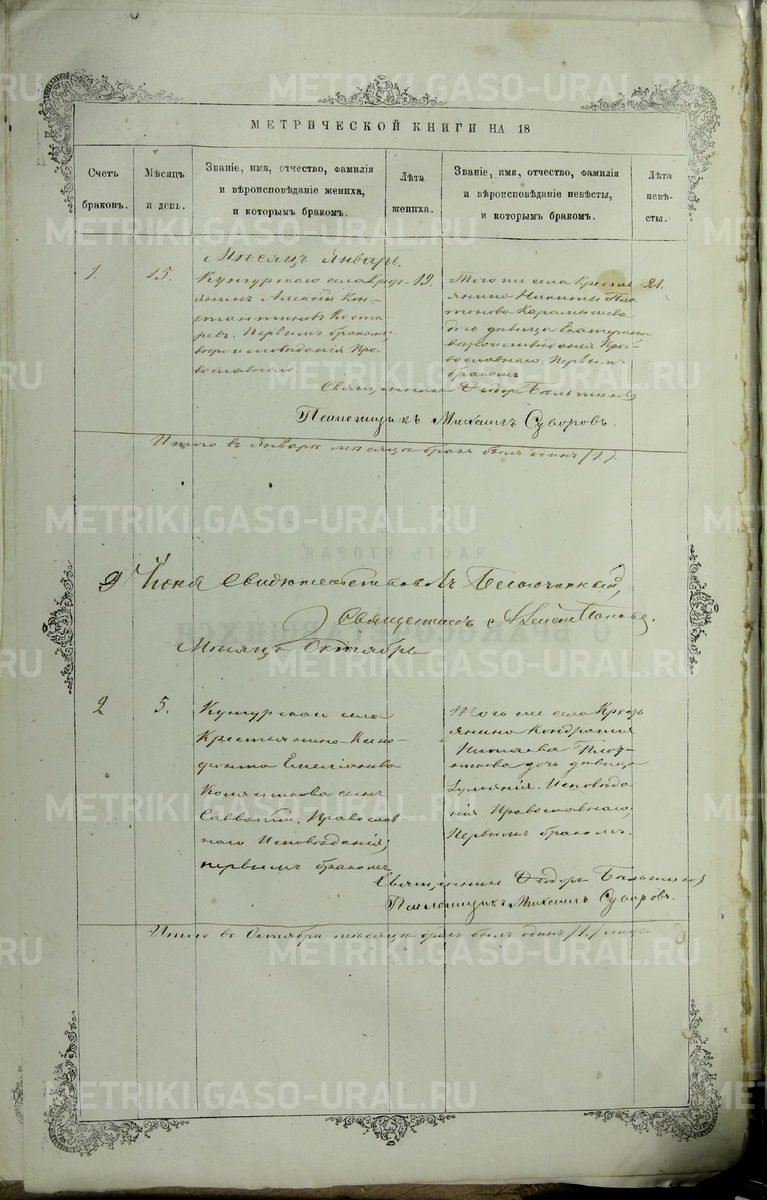 МЕТРИЧЕСКОЙ КНИГИ НА 18
Счетъ браковъ.
Мѣсяцъ и день.
Званіе, имя, отчество, фамилія
и вѣроисповѣданіе жениха,
и которымъ бракомъ.
Лѣта жениха.
Званіе, имя, отчество, фамилія
и вѣроисповѣданіе невѣсты,
и которымъ бракомъ.
Лѣта невѣсты.
Мѣсяцъ Январь.
1.
15.
Кунгурскаго села Крест-
янинъ Алексѣй Кон-
стантиновъ Коста-
ревъ. Первымъ бракомъ,
вѣроисповѣданія Пра-
вославнаго.
19.
Того же села Кресть
янина Никиты Пла
тонова Карамышева
дочь дѣвица Екатерина
вѣроисповѣданія Пра-
вославнаго. Первымъ
бракомъ
21.
Священникъ Федоръ
Псаломщикъ Михаилъ Суворовъ.
Итого въ Январѣ мѣсяцѣ бракъ былъ одинъ (1.).
9 Июня Свидѣтельствовалъ Благочинный,
Священникъ
Мѣсяцъ Октябрь
2
5.
Кунгурскаго села
Крестьянина Ксено-
фонта Емельянова
сынъ
Савватій. Православ
наго Исповѣданія;
первымъ бракомъ
Того же села Кресть
янина Кондратія
дочь дѣвица
Іуліянія. Исповѣда
нія Православнаго,
Первымъ бракомъ.
Священникъ Федоръ
Псаломщикъ Михаилъ Суворовъ.
Итого въ Октябрѣ мѣсяцѣ бракъ былъ одинъ (1.)
METRIKI.GASO-URAL.RU